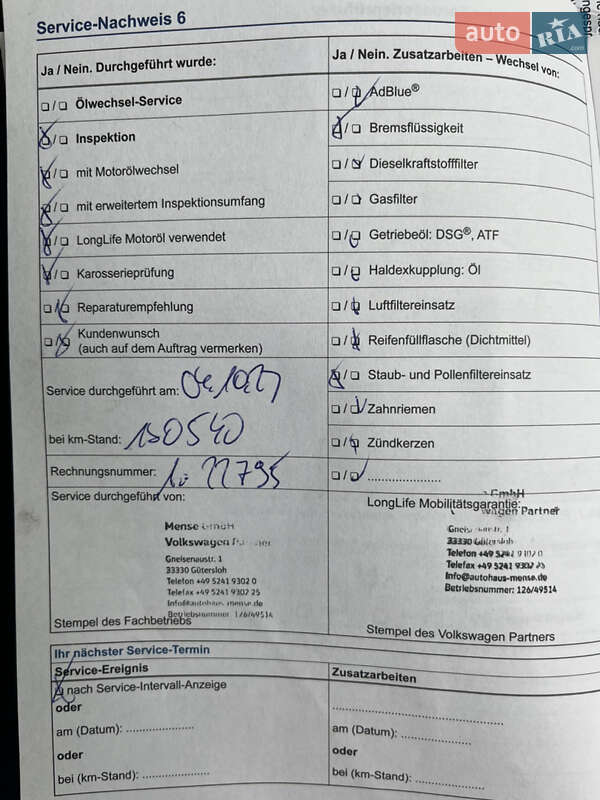 Service-Nachweis 6
auto RIA.com
Ja / Nein. Durchgeführt wurde:
/ Ölwechsel-Service
/ Inspektion
/ mit Motorölwechsel
/ mit erweitertem Inspektionsumfang
/ LongLife Motoröl verwendet
/ Karosserieprüfung
/ Reparaturempfehlung
/ Kundenwunsch
(auch auf dem Auftrag vermerken)
Service durchgeführt am:
bei km-Stand: 130540
Rechnungsnummer:
Service durchgeführt von:
Mense GmbH
Volkswagen Partner
Gneisenaustr. 1
33330 Gütersloh
Telefon +49 5241 9302 0
Telefax +49 5241 9302 25
info@autohaus-mense.de
Betriebsnummer 126/49514
Stempel des Fachbetriebs
Ja / Nein. Zusatzarbeiten – Wechsel von:
/ AdBlue®
/ Bremsflüssigkeit
/ Dieselkraftstofffilter
/ Gasfilter
/ Getriebeöl: DSG®, ATF
/ Haldexkupplung: Öl
/ Luftfiltereinsatz
/ Reifenfüllflasche (Dichtmittel)
/ Staub- und Pollenfiltereinsatz
/ Zahnriemen
/ Zündkerzen
/ ....................
LongLife Mobilitätsgarantie:
GmbH
wagen Partner
Gneisenaustr. 1
33330 Gütersloh
Telefon +49 5241 9302 0
Telefax +49 5241 9302 25
info@autohaus-mense.de
Betriebsnummer: 126/49514
Stempel des Volkswagen Partners
Ihr nächster Service-Termin
Service-Ereignis
nach Service-Intervall-Anzeige
oder
am (Datum): ....................
oder
bei (km-Stand): ....................
Zusatzarbeiten
..................................................
am (Datum): ....................
oder
bei (km-Stand): ....................